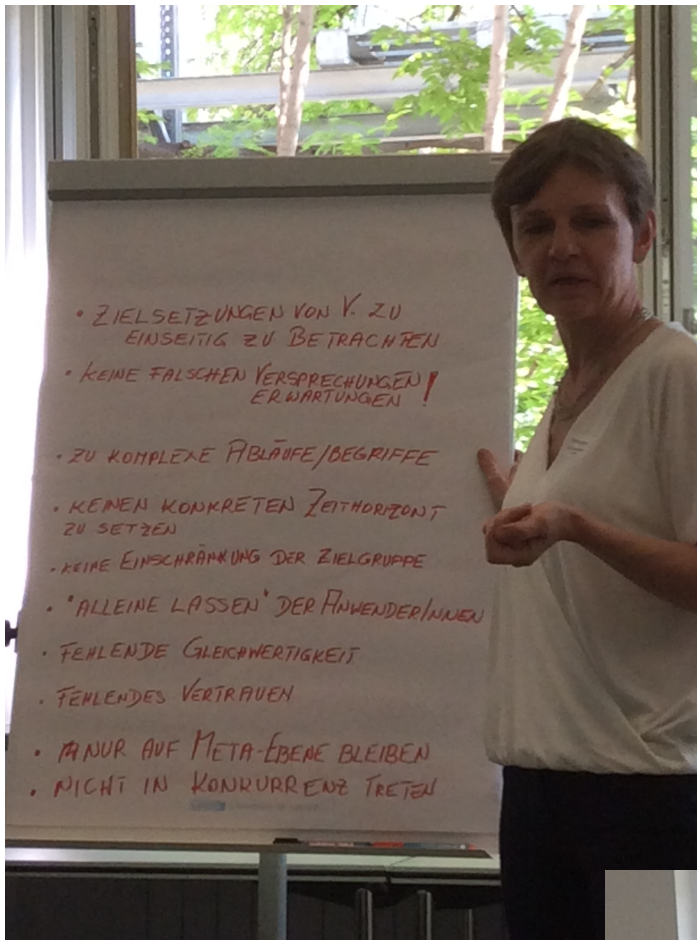 • ZIELSETZUNGEN VON V. ZU
EINSEITIG ZU BETRACHTEN
• KEINE FALSCHEN VERSPRECHUNGEN !
ERWARTUNGEN
• ZU KOMPLEXE ABLÄUFE/BEGRIFFE
• KEINEN KONKRETEN ZEITHORIZONT
ZU SETZEN
• KEINE EINSCHRÄNKUNG DER ZIELGRUPPE
• "ALLEINE LASSEN" DER ANWENDER/INNEN
• FEHLENDE GLEICHWERTIGKEIT
• FEHLENDES VERTRAUEN
• NUR AUF META-EBENE BLEIBEN
• NICHT IN KONKURRENZ TRETEN